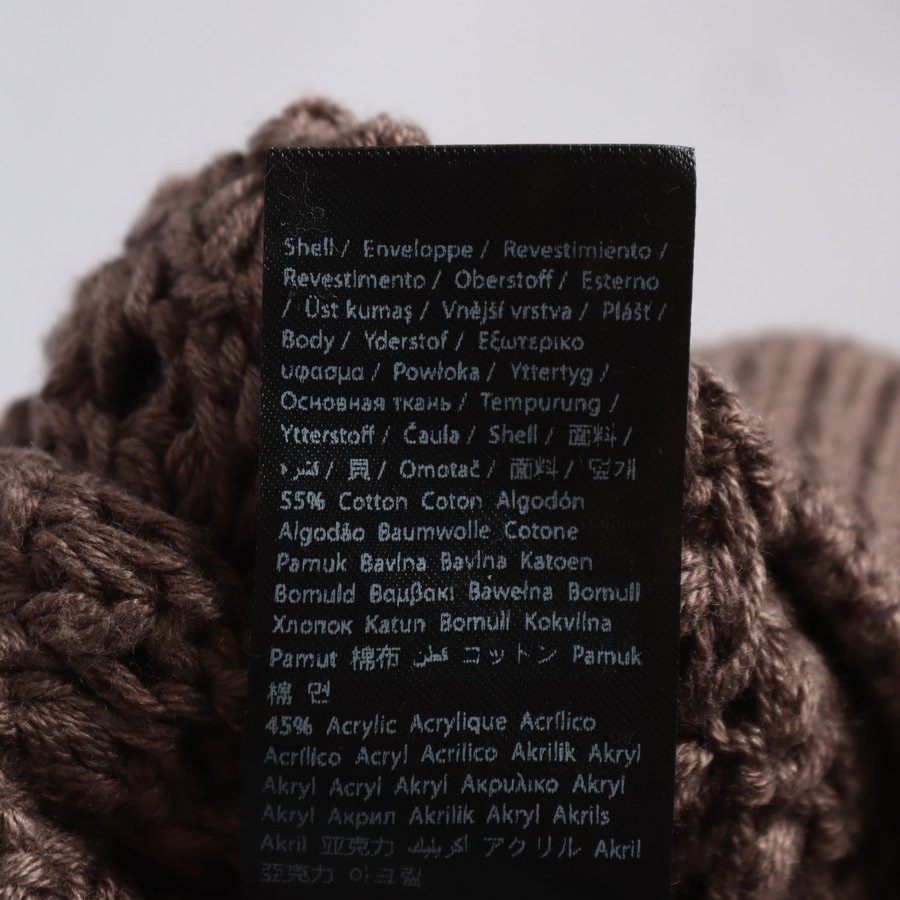 Shell / Enveloppe / Revestimiento /
Revestimento / Oberstoff / Esterno
/ Üst kumaş / Vnější vrstva / Plášť /
Body / Yderstof / Εξωτερικο
υφασμα / Powłoka / Yttertyg /
Основная ткань / Tempurung /
Ytterstoff / Čaula / Shell / 面料 /
/ 貝 / Omotač / 面料 / 덮개
55% Cotton Coton Algodón
Algodão Baumwolle Cotone
Pamuk Bavlna Bavlna Katoen
Bomuld Βαμβακι Bawełna Bomull
Хлопок Katun Bomull Kokvilna
Pamut 棉布 قطن コットン Pamuk
棉 면
45% Acrylic Acrylique Acrílico
Acrílico Acryl Acrilico Akrilik Akryl
Akryl Acryl Akryl Ακρυλικο Akryl
Akryl Акрил Akrilik Akryl Akrils
Akril 亚克力 أكريليك アクリル Akril
亞克力 아크릴